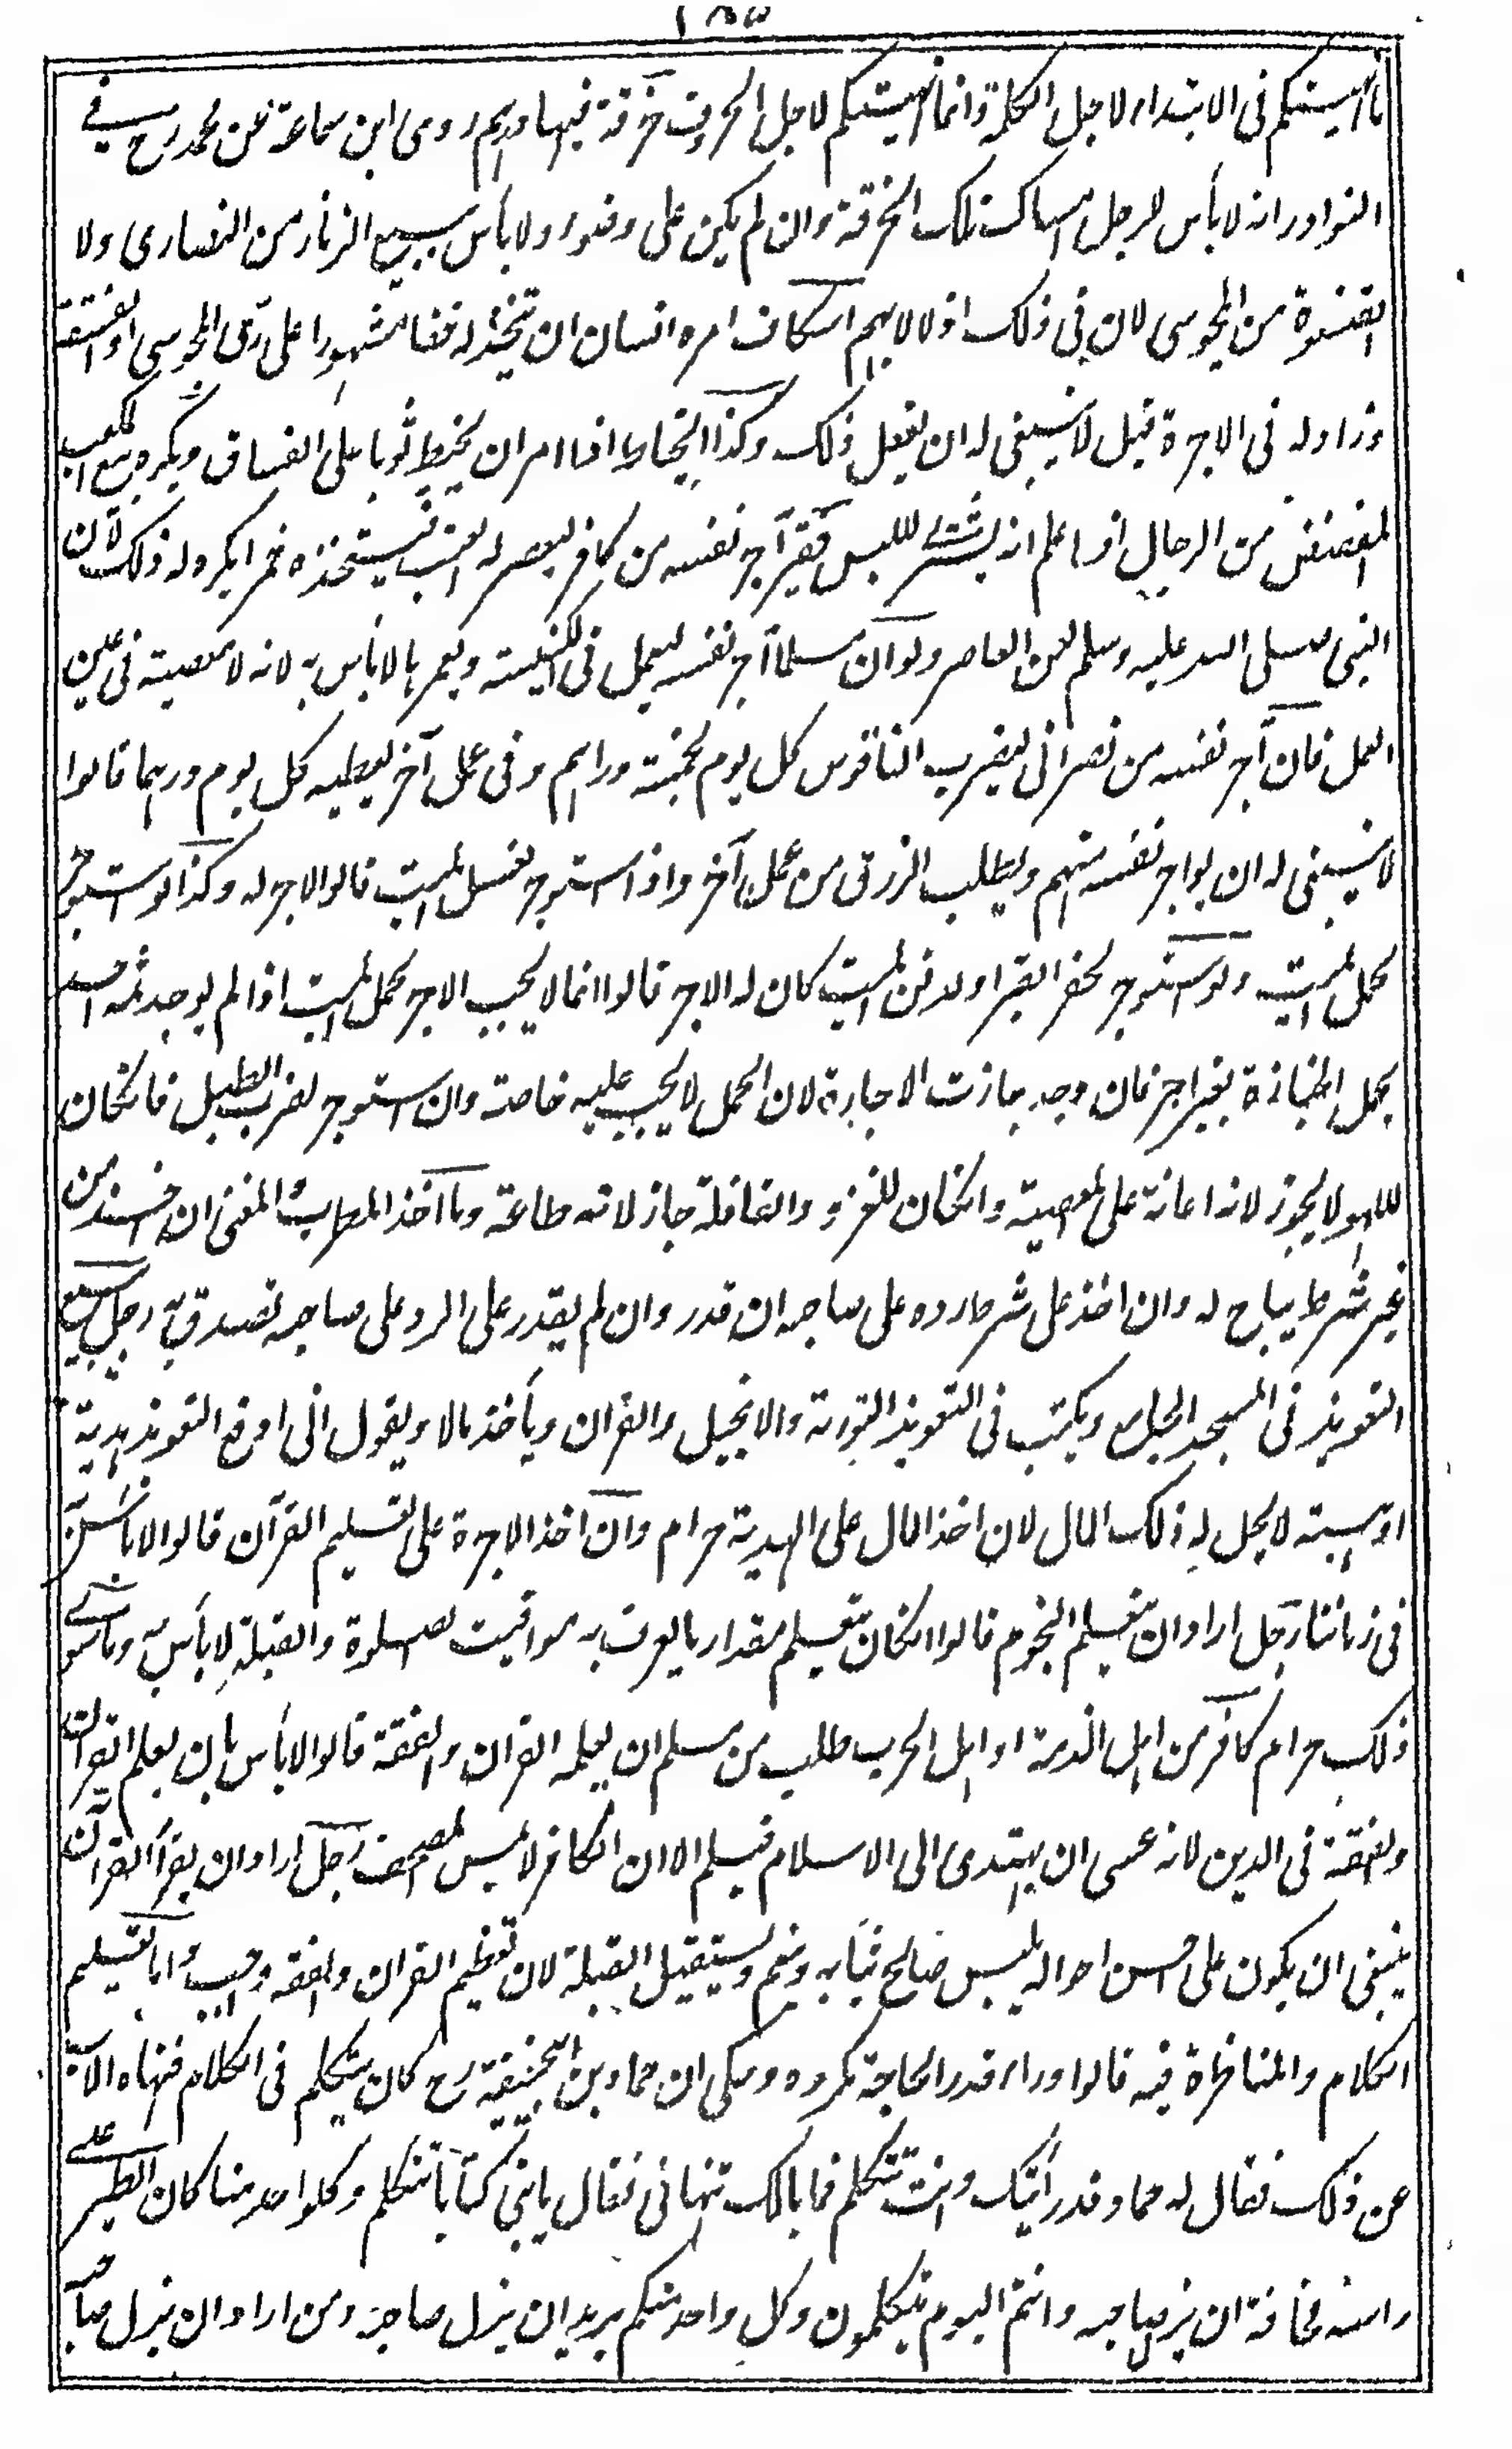 ١٣٥
ما امسيتكم في الابتداء لاجل الكلمة وانما امسيتكم لاجل الحروف خرقة فيها دراهم روى ابن سماعة عن محمد رح في
النوادر انه لا بأس للرجل امساك تلك الخرقة وان لم يكن على وضوء ولا بأس ببيع الزنار من النصارى ولا
القلنسوة من المجوسى لان فى ذلك اذلالا لهم اسكاف امره انسان ان يتخذ له خفا مشهورا على زى المجوسى او الفسقة
وزاد له فى الاجرة قيل لا ينبغى له ان يفعل ذلك وكذا الخياط اذا امر ان يخيط ثوبا على الفساق ويكره بيع المكعب
المفضض من الرجال اذا علم انه يشترى للبس فقير آجر نفسه من كافر ليعصر له العنب فيتخذه خمرا يكره له ذلك لان
النبى صلى الله عليه وسلم لعن العاصر ولو ان مسلما آجر نفسه ليعمل فى الكنيسة ويعمرها لا بأس به لانه لا معصية فى عين
العمل فان آجر نفسه من نصرانى ليضرب الناقوس كل يوم بخمسة دراهم وفى عمل آخر يعطيه كل يوم درهما قالوا
لا ينبغى له ان يواجر نفسه منهم ويطلب الرزق من عمل آخر واذا استوجر لغسل الميت قالوا لا اجر له وكذا لو استوجر
لحمل الميت ولو استوجر لحفر القبر او لدفن الميت كان له الاجر قالوا انما لا يجب الاجر لحمل الميت اذا لم يوجد ثمه احد
يحمل الجنازة بغير اجر فان وجد جازت الاجارة لان الحمل لا يجب عليه خاصة وان استوجر لضرب الطبل فانكان
للهو لا يجوز لانه اعانة على المعصية وانكان للغزو والقافلة جاز لانه طاعة وما اخذ المطرب والمغنى ان اخذ من
غير شرط يباح له وان اخذ على شرط رده على صاحبه ان قدر وان لم يقدر على الرد على صاحبه تصدق به رجل يبيع
التعويذ فى المسجد الجامع ويكتب فى التعويذ التورية والانجيل والقران ويأخذ مالا ويقول انى ادفع التعويذ هدية
او هبة لا يحل له ذلك المال لان اخذ المال على الهدية حرام وان اخذ الاجرة على تعليم القرآن قالوا لا بأس به
فى زماننا رجل اراد ان يتعلم النجوم قالوا انكان يتعلم مقدار ما يعرف به مواقيت الصلوة والقبلة لا بأس به وما سوى
ذلك حرام كافر من اهل الذمة او اهل الحرب طلب من مسلم ان يعلمه القران والفقه قالوا لا بأس بان يعلم القران
والفقه فى الدين لانه عسى ان يهتدى الى الاسلام فيسلم الا ان الكافر لا يمس المصحف رجل اراد ان يقرأ القرآن
ينبغى ان يكون على احسن احواله يلبس صالح ثيابه ويتعمم ويستقبل القبلة لان تعظيم القران والفقه واجب واما تعليم
الكلام والمناظرة فيه قالوا وراء قدر الحاجة مكروه وحكى ان حماد بن ابى حنيفة رح كان يتكلم فى الكلام فنهاه الاب
عن ذلك فقال له حماد وقد رأيتك وانت تتكلم فما بالك تنهانى فقال يا بنى كنا نتكلم وكل واحد منا كان الطير على
راسه مخافة ان يزل صاحبه وانتم اليوم تتكلمون وكل واحد منكم يريد ان يزل صاحبه ومن اراد ان يزل صاحبه